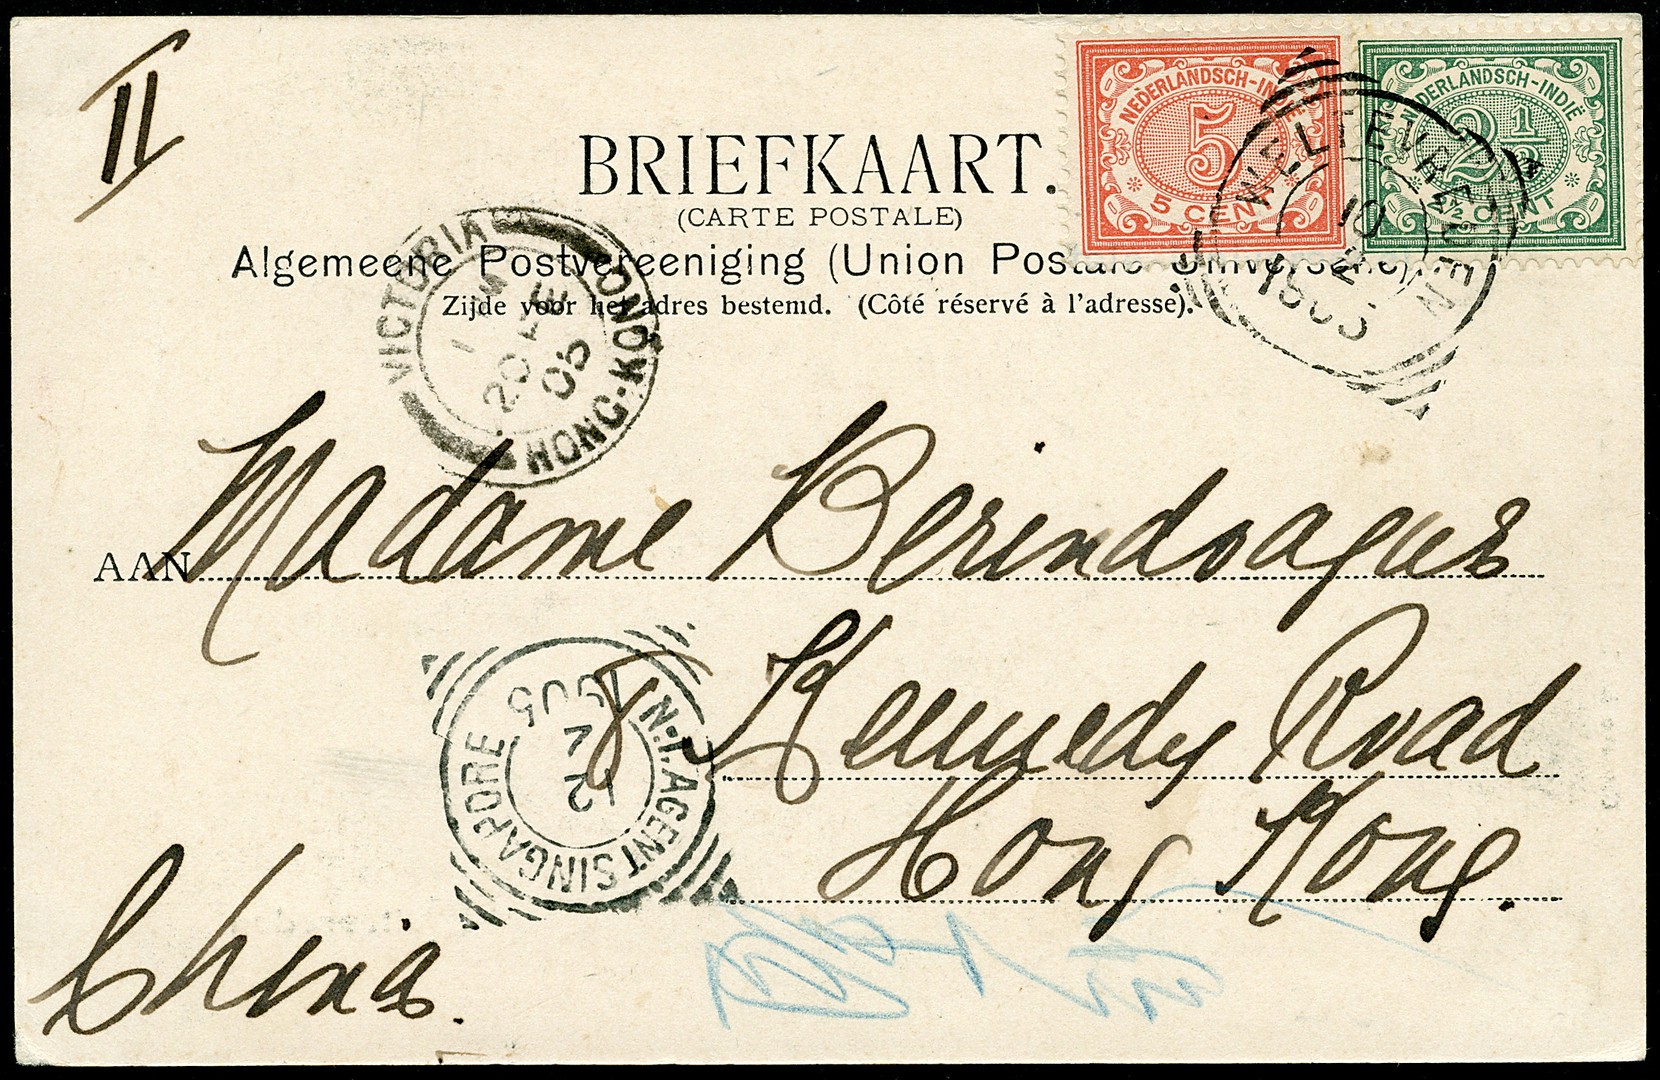 II
NEDERLANDSCH-INDIË
5
5 CENT
NEDERLANDSCH-INDIË
2½
2½ CENT
WELTEVREDEN
10
2
1905
BRIEFKAART.
(CARTE POSTALE)
Algemeene Postvereeniging (Union Postale Universelle)
Zijde voor het adres bestemd. (Côté réservé à l'adresse).
VICTORIA HONG-KONG
20 FE
05
AAN Madame Berindoague
8 Kennedy Road
Hong Kong.
China.
N.I. AGENT SINGAPORE
12
2
1905